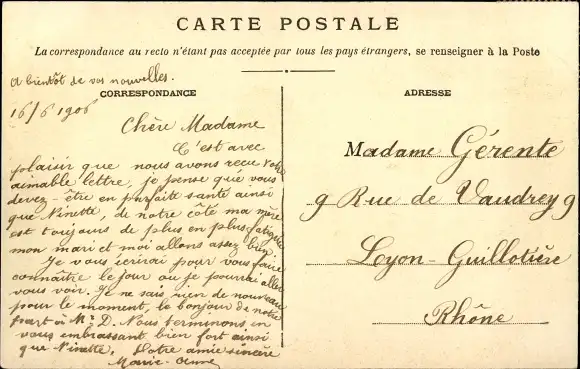 CARTE POSTALE
La correspondance au recto n'étant pas acceptée par tous les pays étrangers, se renseigner à la Poste
A bientôt de vos nouvelles.
CORRESPONDANCE
16/6 1906
Chère Madame
C'est avec
plaisir que nous avons reçu votre
aimable lettre, je pense que vous
devez-être en parfaite santé ainsi
que Ninette, de notre côté ma mère
est toujours de plus en plus fatiguée
mon mari et moi allons assez bien.
Je vous écrirai pour vous faire
connaître le jour ou je pourrai aller
vous voir. Je ne sais rien de nouveau
pour le moment, le bonjour de notre
part à Mr D. Nous terminons en
vous embrassant bien fort ainsi
que Ninette, Votre amie sincère
Marie-Anne
ADRESSE
Madame Gérente
9 Rue de Vaudrey 9
Lyon-Guillotière
Rhône